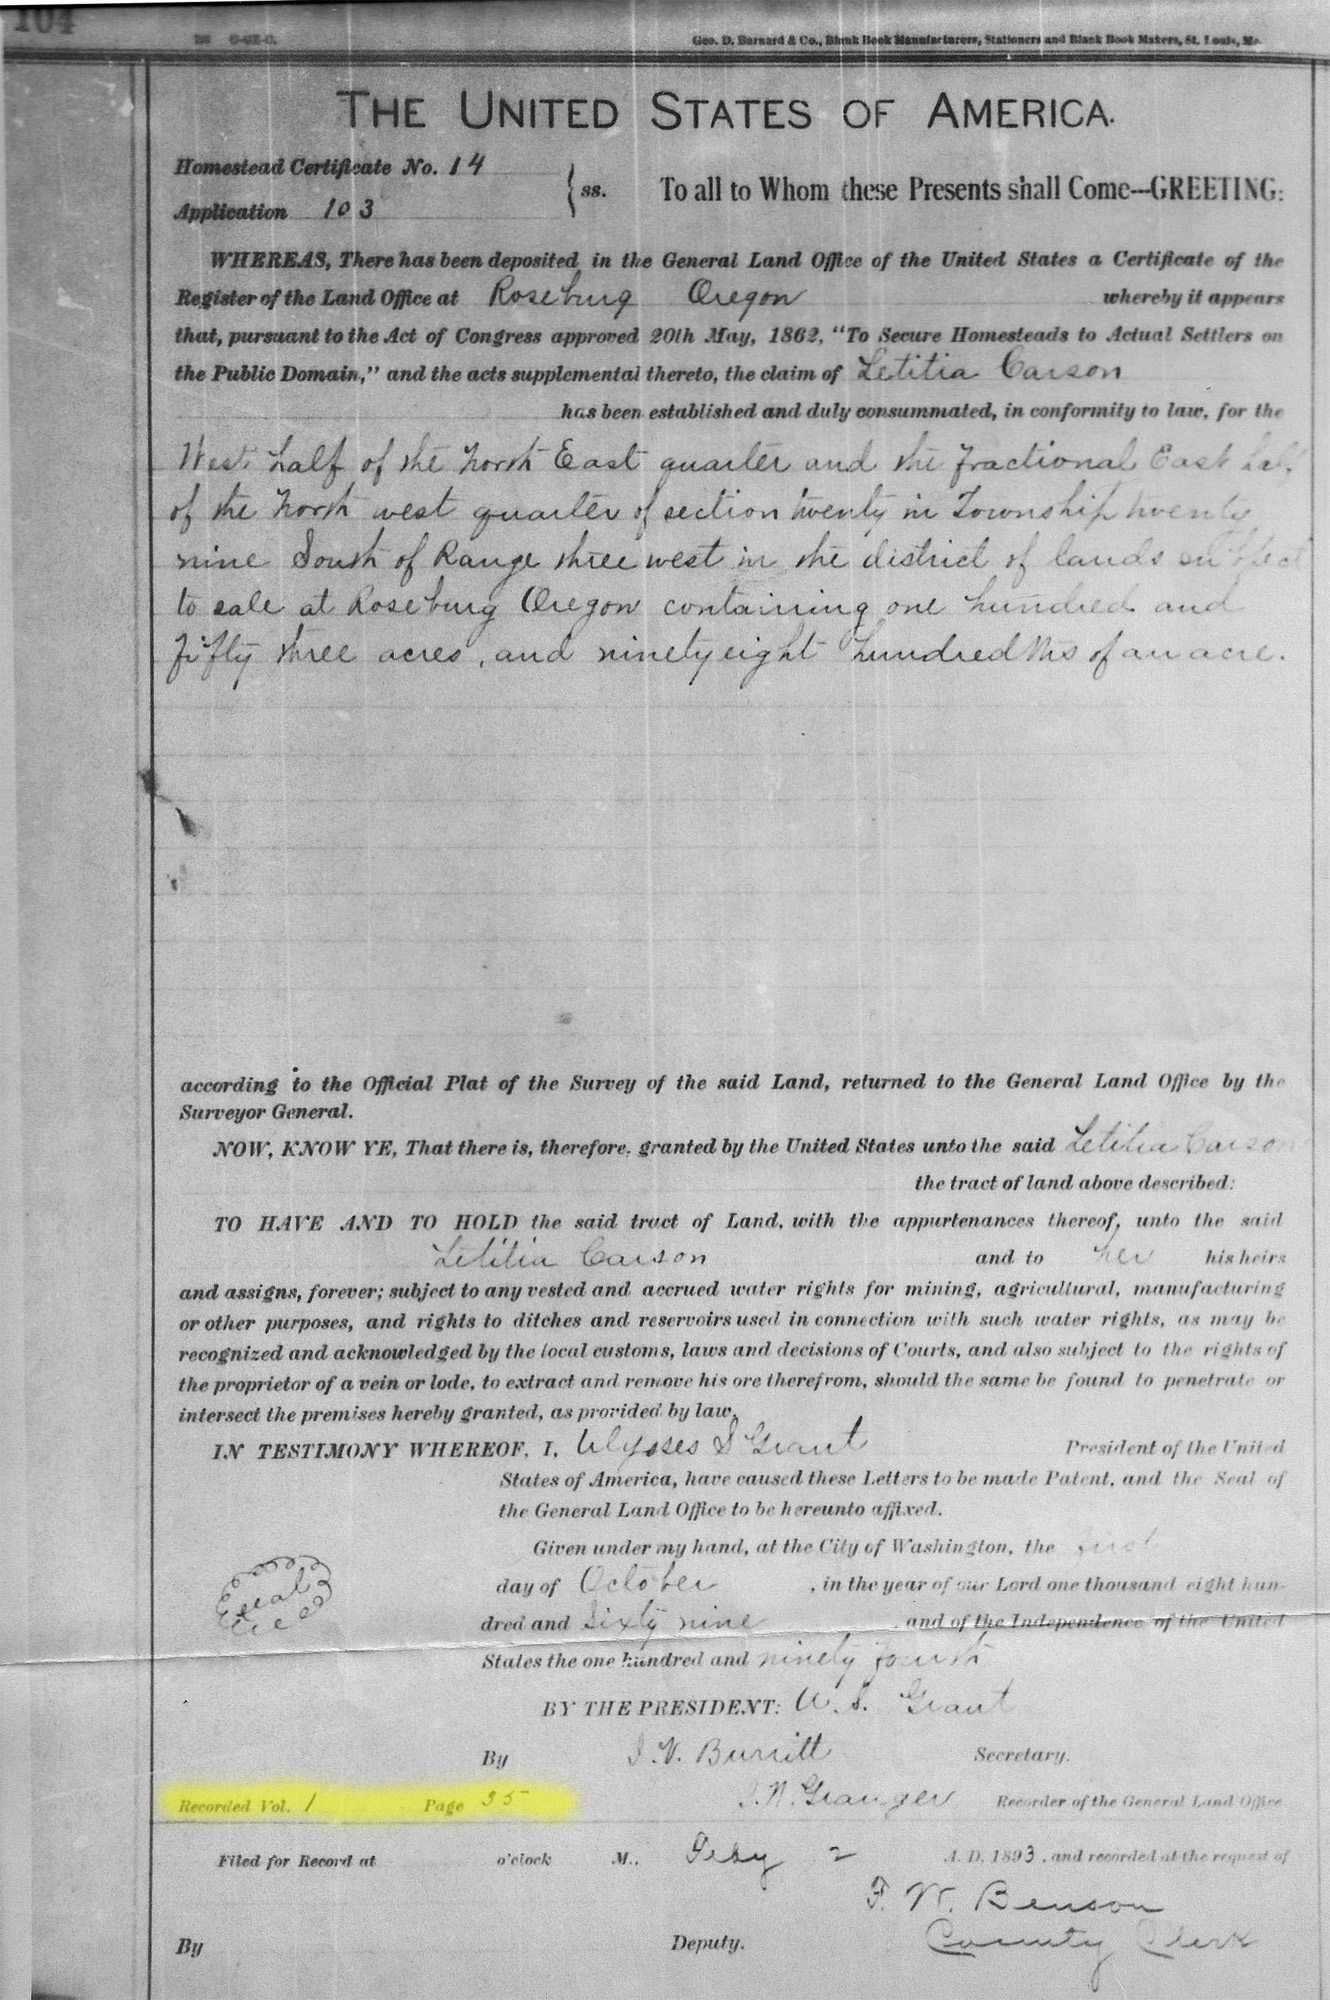 104
Geo. D. Barnard & Co., Blank Book Manufacturers, Stationers and Blank Book Makers, St. Louis, Mo.
THE UNITED STATES OF AMERICA.
Homestead Certificate No. 14
Application 103
ss.
To all to Whom these Presents shall Come---GREETING:
WHEREAS, There has been deposited in the General Land Office of the United States a Certificate of the
Register of the Land Office at Roseburg Oregon whereby it appears
that, pursuant to the Act of Congress approved 20th May, 1862, "To Secure Homesteads to Actual Settlers on
the Public Domain," and the acts supplemental thereto, the claim of Letitia Carson
has been established and duly consummated, in conformity to law, for the
West half of the North East quarter and the fractional East half
of the North west quarter of section twenty in Township twenty
nine South of Range three west in the district of lands subject
to sale at Roseburg Oregon containing one hundred and
fifty three acres, and ninety eight hundredths of an acre.
according to the Official Plat of the Survey of the said Land, returned to the General Land Office by the
Surveyor General.
NOW, KNOW YE, That there is, therefore, granted by the United States unto the said Letitia Carson
the tract of land above described:
TO HAVE AND TO HOLD the said tract of Land, with the appurtenances thereof, unto the said
Letitia Carson and to her his heirs
and assigns, forever; subject to any vested and accrued water rights for mining, agricultural, manufacturing
or other purposes, and rights to ditches and reservoirs used in connection with such water rights, as may be
recognized and acknowledged by the local customs, laws and decisions of Courts, and also subject to the rights of
the proprietor of a vein or lode, to extract and remove his ore therefrom, should the same be found to penetrate or
intersect the premises hereby granted, as provided by law.
IN TESTIMONY WHEREOF, I, Ulysses S Grant President of the United
States of America, have caused these Letters to be made Patent, and the Seal of
the General Land Office to be hereunto affixed.
Given under my hand, at the City of Washington, the first
day of October, in the year of our Lord one thousand eight hun-
dred and Sixty nine, and of the Independence of the United
States the one hundred and ninety fourth
Seal
BY THE PRESIDENT: U. S. Grant
By I. V. Burritt Secretary.
Recorded Vol. 1 Page 35 I. N. Granger Recorder of the General Land Office
Filed for Record at o'clock M., Feby 2 A. D. 1893, and recorded at the request of
F. W. Benson
County Clerk
By Deputy.